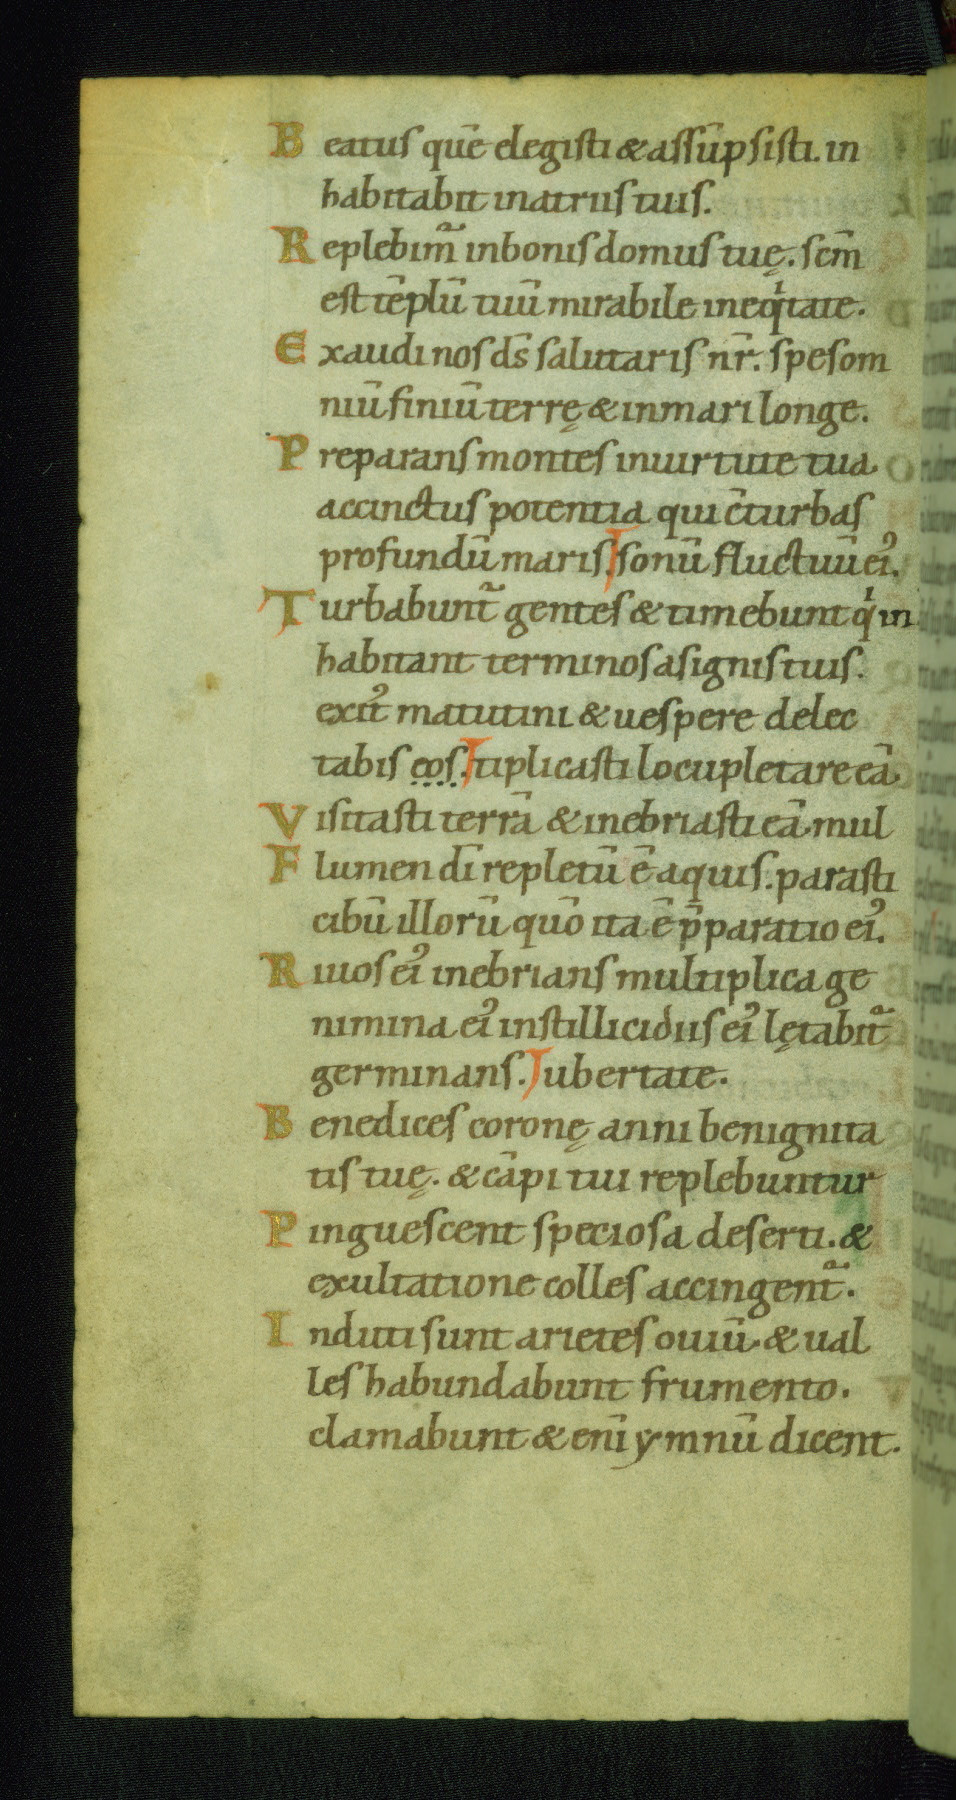 Beatus quē elegisti & assūpsisti. in
habitabit in atriis tuis.
Replebim᷑ in bonis domus tuę. scm̄
est tēplū tuū mirabile in eqͥtate.
Exaudi nos ds̄ salutaris nr̄. spes om
niū finiū terrę & in mari longe.
Preparans montes in uirtute tua
accinctus potentia qui c̄turbas
profundū maris sonū fluctuū ei᾽.
Turbabunt᷑ gentes & timebunt qͥ in
habitant terminos a signis tuis.
exit᾽ matutini & uespere delec
tabis eos. tiplicasti locupletare eā
Visitasti terrā & inebriasti eā mul
Flumen dī repletū ē aquis. parasti
cibū illorū quō ita ē p̄paratio ei᾽.
Riuos ei᾽ inebrians multiplica ge
nimina ei᾽ in stillicidiis ei᾽ lętabit᷑
germinans. ubertate.
Benedices coronę anni benignita
tis tuę. & cāpi tui replebuntur
Pinguescent speciosa deserti. &
exultatione colles accingent᷑.
Induti sunt arietes ouiū & ual
les habundabunt frumento.
clamabunt & enī ymnū dicent.